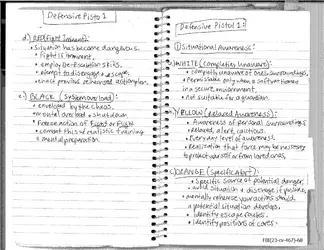 Defensive Pistol 1
d.) RED (Fight Imminent):
• Situation has become dangerous.
• Fight is imminent.
• employ De-Escalation SKills.
• attempt to disengage + escape.
• enact previous rehearsed action plan.
e.) BLACK (System overload):
• enveloped by the chaos.
• mental overload + shutdown
• Freeze action of Fight or Flight
• combat this w/ realistic training
+ mental preparation.
Defensive Pistol 1:
① Situational Awareness:
a.) WHITE (Completely Unaware):
• completely unaware of ones surroundings.
• Permissable only when @ safe at home
in a secure environment.
• Not suitable for a guardian.
b.) YELLOW (Relaxed Awareness):
• Awareness of personal surroundings
• Relaxed, alert, cautious.
• Everyday level of awareness.
• Realization that force may be necessary
to protect yourself or loved ones.
c.) ORANGE (Specific Alert):
• Specific source of potential danger.
• avoid situation + disengage if possible.
• mentally rehearse your actions should
a potential situation develop.
• Identify escape routes.
• Identify positions of cover.
FBI(23-cv-467)-68